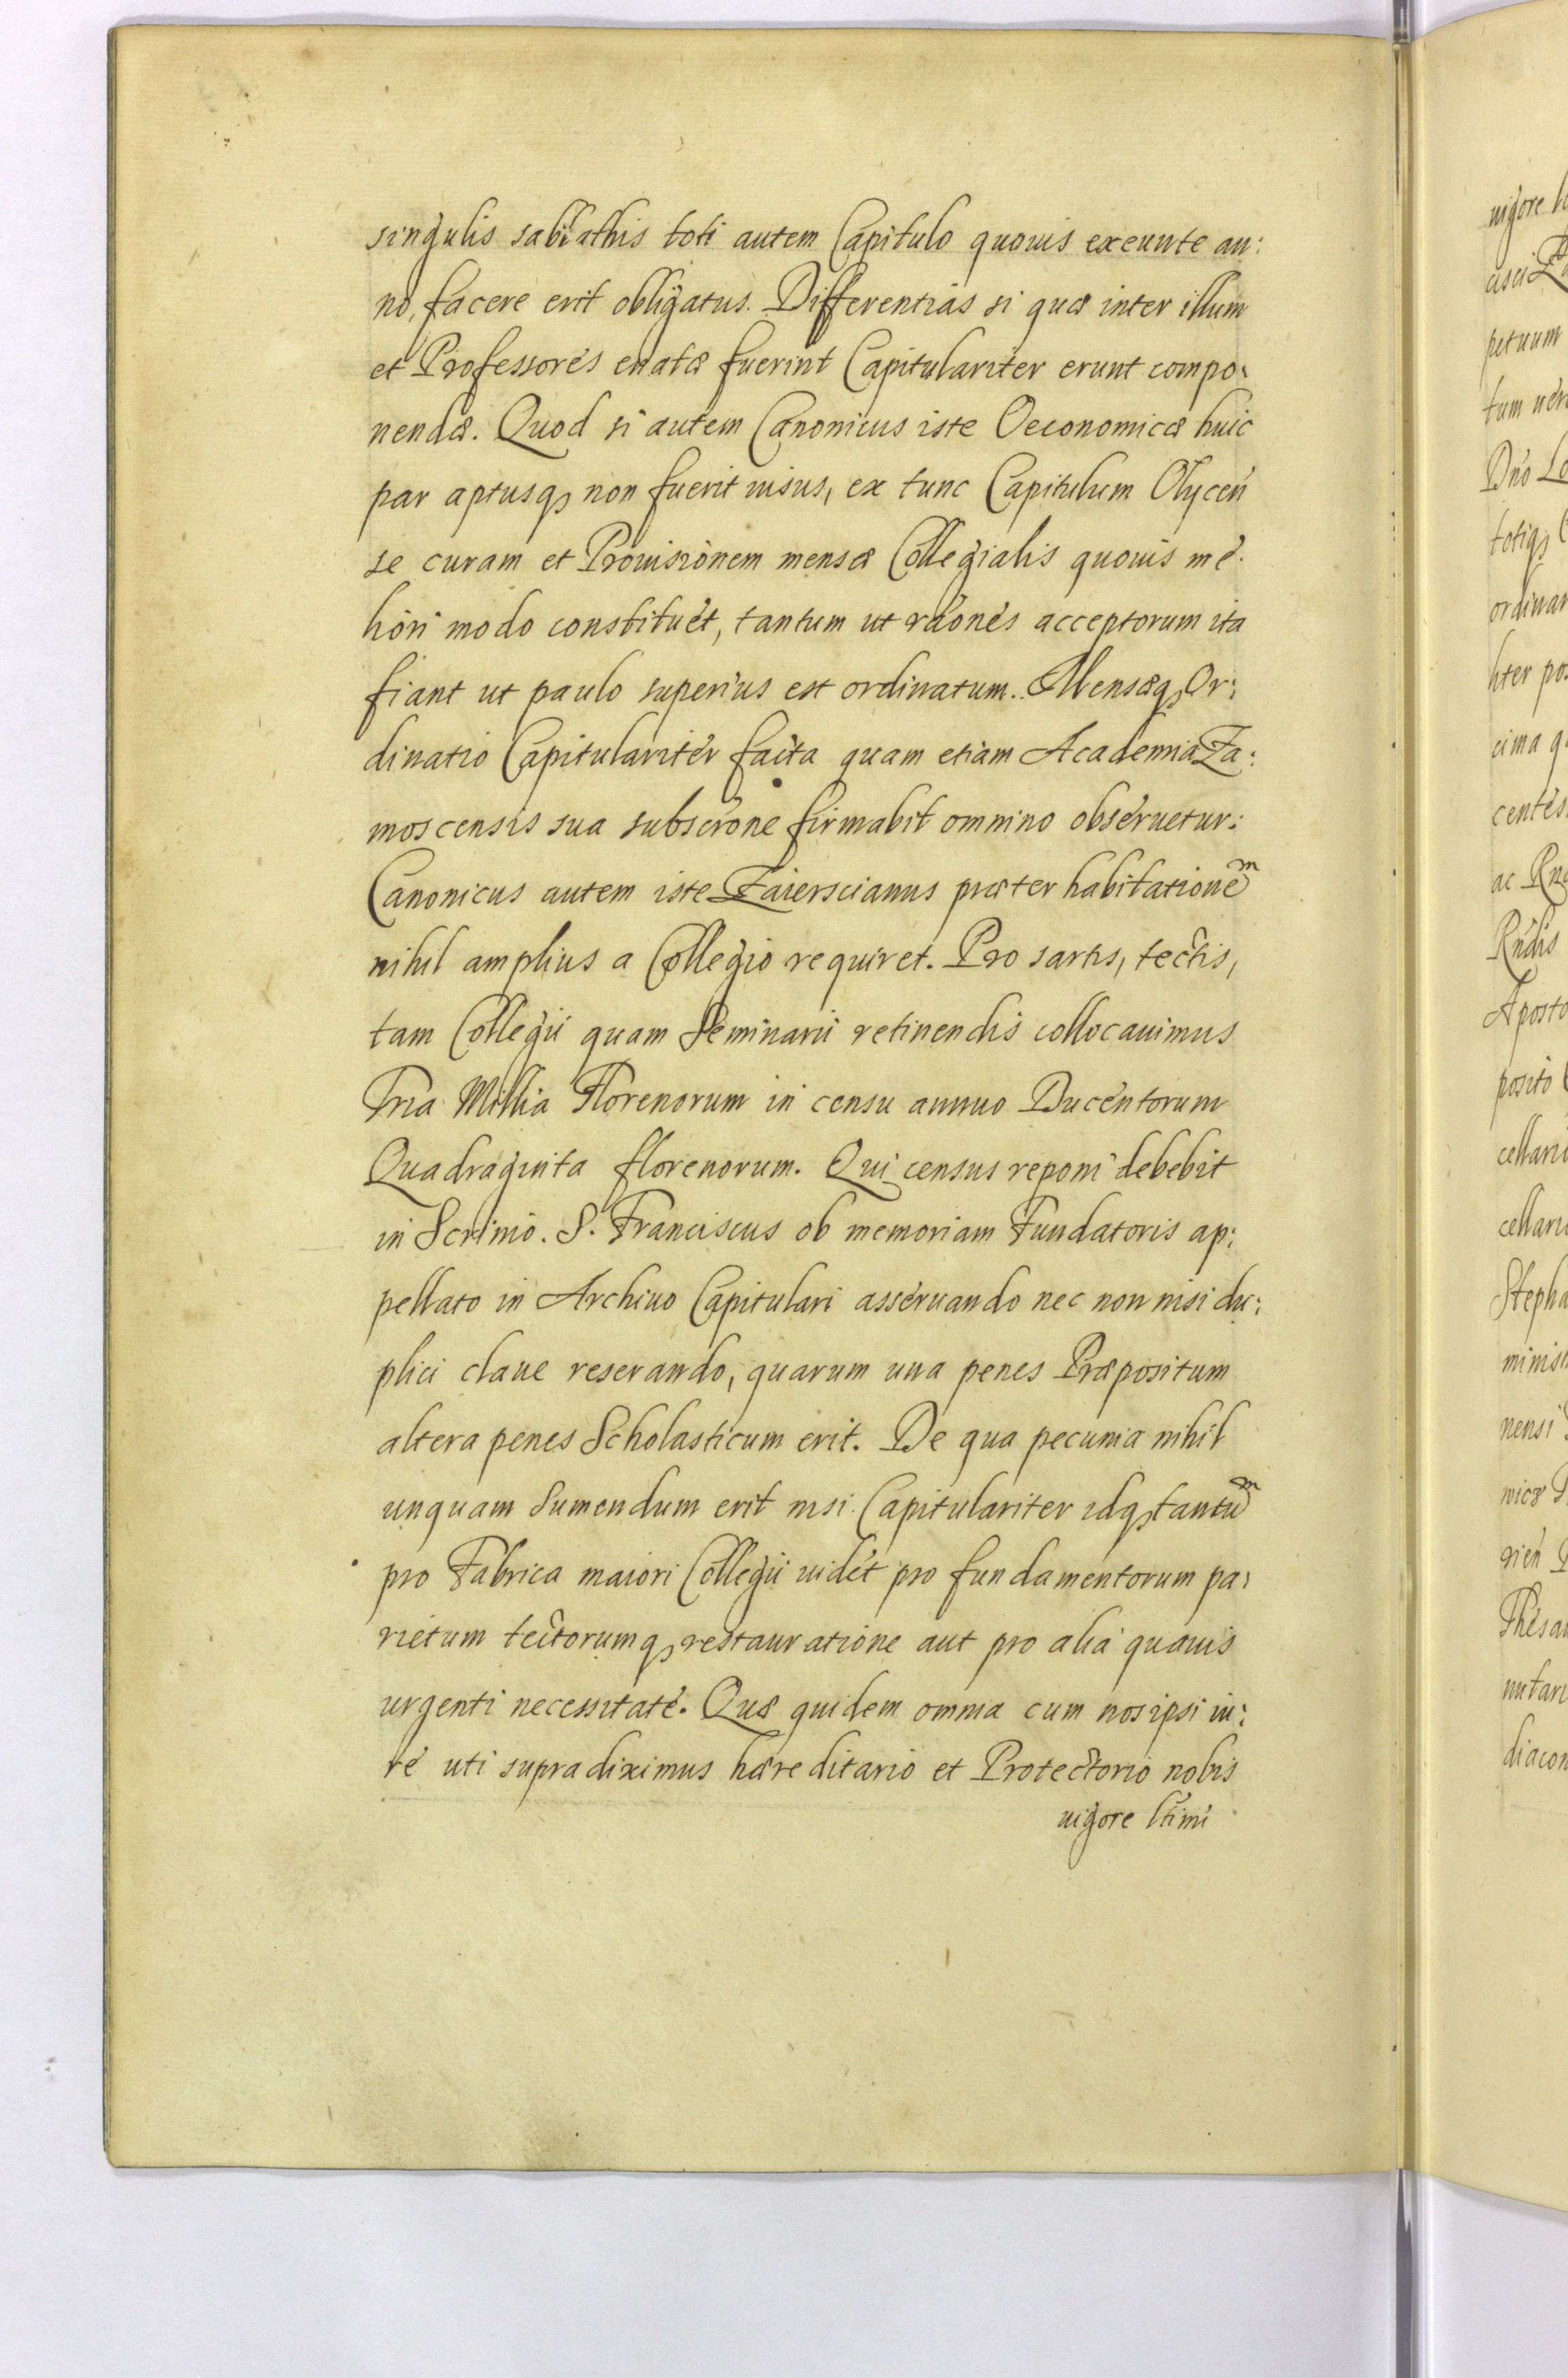 singulis sabbathis toti autem Capitulo quouis exeunte an:
no, facere erit obligatus. Differentias si quæ inter illum
et Professores enatæ fuerint Capitulariter erunt compo:
nendæ. Quod si autem Canonicus iste Oeconomicæ huic
par aptusqȝ non fuerit uisus, ex tunc Capitulum Olycen
se curam et Prouisionem mensæ Collegialis quouis me:
liori modo constituet, tantum ut raones acceptorum ita
fiant ut paulo superius est ordinatum. Mensæqȝ Or:
dinatio Capitulariter facta quam etiam Academia Za:
moscensis sua subscrone firmabit omnino obseruetur:
Canonicus autem iste Zaierscianus præter habitationẽm
nihil amplius a Collegio requiret. Pro sartis, tectis,
tam Collegii quam Seminarii retinendis collocauimus
Tria Millia Florenorum in censu annuo Ducentorum
Quadraginta florenorum. Qui census reponi debebit
in Scrinio. S. Franciscus ob memoriam Fundatoris ap:
pellato in Archiuo Capitulari asseruando nec non nisi du:
plici claue reserando, quarum una penes Præpositum
altera penes Scholasticum erit. De qua pecunia nihil
unquam sumendum erit nisi Capitulariter idqȝ tantũm
pro Fabrica maiori Collegii uidet pro fundamentorum pa:
rietum tectorumqȝ restauratione aut pro alia quauis
urgenti necessitate. Quæ quidem omnia cum nos ipsi iu:
re uti supra diximus hæreditario et Protectorio nobis
uigore ltimi
uigore
petuum
Dno
cima
centes
ac
posito